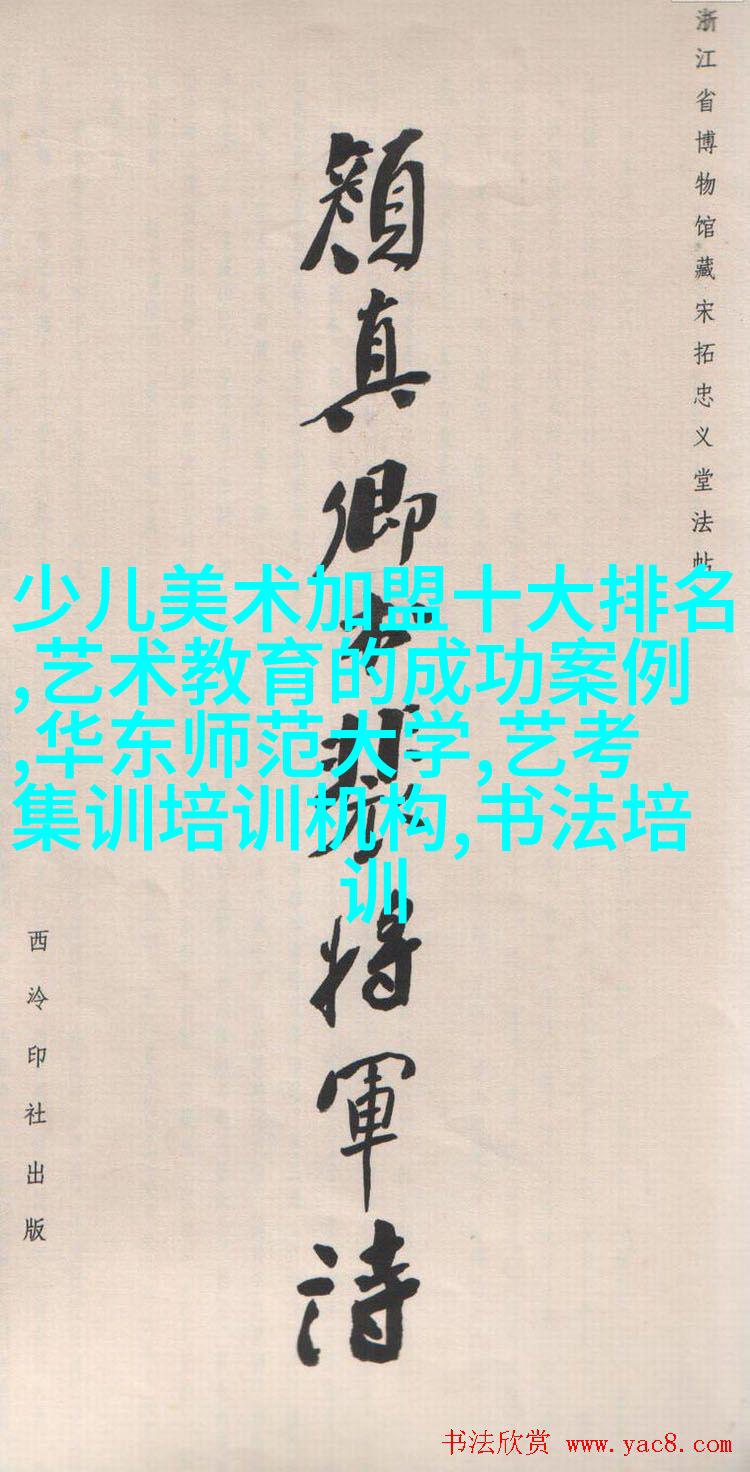 浙江省博物馆藏宋拓忠义堂法帖
顏真卿书裴将軍诗
西泠印社出版
少儿美术加盟十大排名
,艺术教育的成功案例
,华东师范大学,艺考
集训培训机构,书法培
训
书法欣赏 www.yac8.com